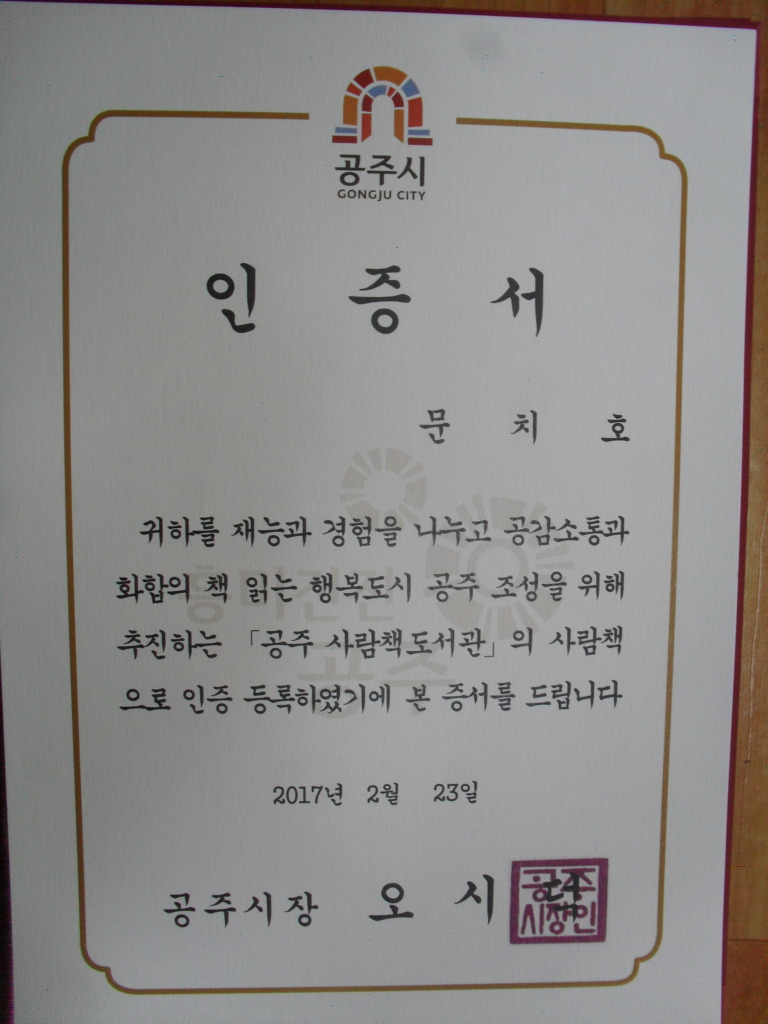 공주시
GONGJU CITY
인 증 서
문 치 호
귀하를 재능과 경험을 나누고 공감소통과
화합의 책 읽는 행복도시 공주 조성을 위해
추진하는 「공주 사람책도서관」의 사람책
으로 인증 등록하였기에 본 증서를 드립니다
흥미진진
공주
2017년 2월 23일
공주시장 오 시 덕
공주
시장인